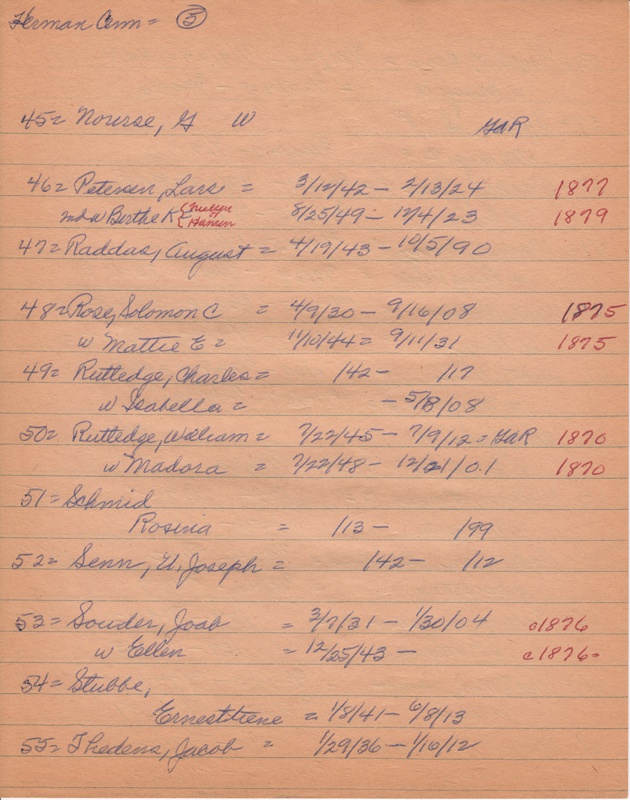 Herman Cem = 5
45= Nourse, G W GAR
46= Petersen, Lars = 3/12/42 - 2/13/24 1877
w Berthe K {Evelyn Hansen 8/25/49 - 12/4/23 1879
47= Raddas, August = 4/19/43 - 10/5/90
48= Rose, Solomon C = 4/9/30 - 9/16/08 1875
w Mattie E = 11/10/44 = 9/11/31 1875
49= Rutledge, Charles = /42 - /17
w Isabella = - 5/8/08
50= Rutledge, William = 7/22/45 - 7/9/12 = GAR 1870
w Madora = 7/22/48 - 12/21/01 1870
51= Schmid
Rosina = /13 - /99
52= Senn, U, Joseph = /42 - /12
53= Souder, Joab = 3/7/31 - 1/30/04 c1876
w Ellen = 12/25/43 - c1876-
54= Stubbe,
Ernesttiene = 1/8/41 - 6/8/13
55= Thedens, Jacob = 1/29/36 - 1/16/12